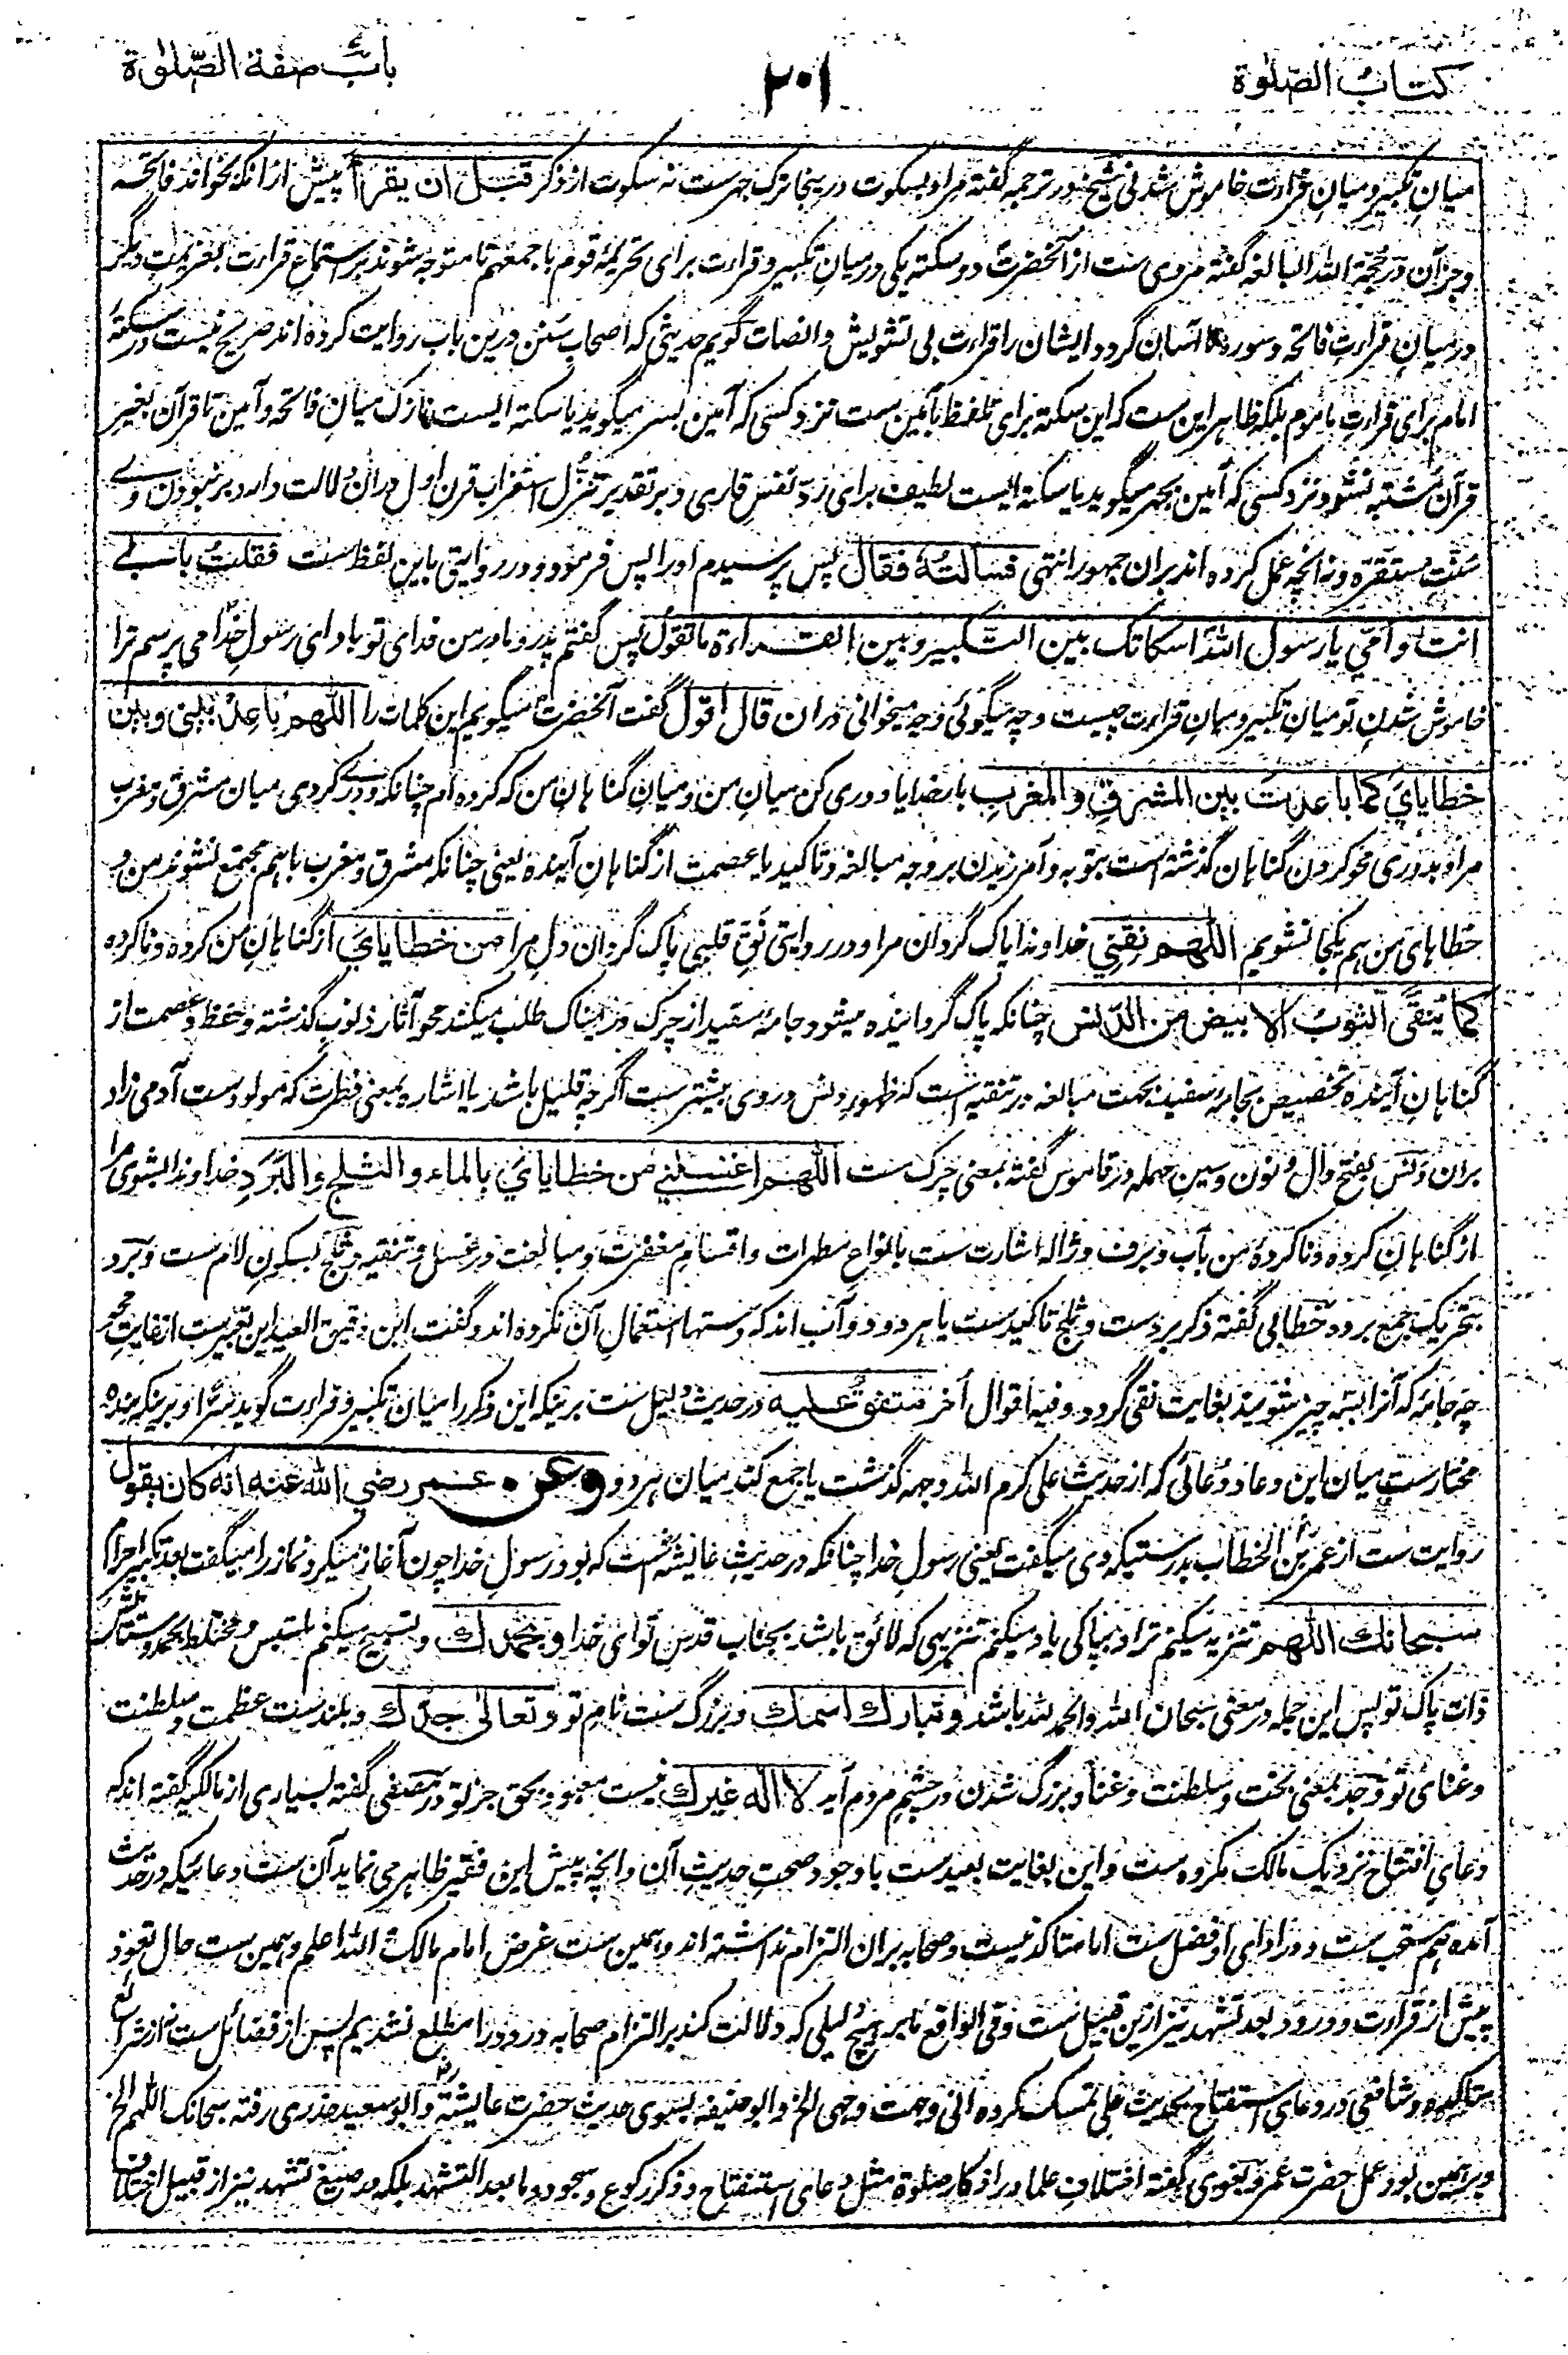 کتاب الصّلوٰة
۲۰۱
باب صفة الصّلوٰة
میانِ تکبیر و میانِ قراءت خاموش شدنی شیخ در ترجمه گفته مراد بسکوت درینجا ترک جهرست نه سکوت از ذکر قبل ان یقرأ پیش ازانکه بخواند فاتحه
و جز آن در حجة الله البالغه گفته مروی ست از آنحضرتؐ دو سکته یکی درمیانِ تکبیر و قراءت برای تحریمهٔ قوم باجمعهم تا متوجه شوند بر استماعِ قراءت بعزیمت دیگر
درمیانِ قراءتِ فاتحه و سوره تا آسان گردد ایشان را قراءت بی تشویش و انصات گویم حدیثی که اصحابِ سنن درین باب روایت کرده اند صریح نیست در سکتهٔ
امام برای قراءتِ مأموم بلکه ظاهر این ست که این سکته برای تلفظ بآمین ست نزد کسی که آمین بسر میگوید یا سکته ایست نازک میانِ فاتحه و آمین تا قرآن بغیرِ
قرآن مشتبه نشود نزد کسی که آمین بجهر میگوید یا سکته ایست لطیف برای ردّ نفسِ قاری و بر تقدیر تنزّل استغراب قرن اول دران دلالت دارد بر نبودن وے
سنّتِ مستقره و نه انچه عمل کرده اند بران جمهور انتهی فسالتهٗ فقال پس پرسیدم او را پس فرمود و در روایتی باین لفظ ست فقلتُ بابے
انت و امّی یا رسول اللهؐ اسکاتک بین التّکبیر و بین القراءة ما تقول پس گفتم پدر و مادر من فدای تو باد ای رسولِ خداؐ می پرسم ترا
خاموش شدنِ تو میانِ تکبیر و میانِ قراءت چیست و چه میگوئی و چه میخوانی دران قال اقول گفت آنحضرتؐ میگویم این کلمات را اللهم باعد بینی و بین
خطایای کما باعدت بین المشرق والمغرب بار خدایا دوری کن میانِ من و میانِ گناهانِ من که کرده ام چنانکه دوری کردی میان مشرق و مغرب
مراد بدوری محو کردن گناهان گذشته است بتوبه و آمرزیدن بر وجه مبالغه و تاکید یا عصمت از گناهانِ آینده یعنی چنانکه مشرق و مغرب باهم مجتمع نشوند من و
خطاهای من هم یکجا نشویم اللهم نقنی خداوندا پاک گردان مرا و در روایتی نَقِّ قلبی پاک گردان دل مرا من خطایای از گناهانِ من کرده و ناکرده
کما ینقّی الثوب الابیض من الدنس چنانکه پاک گردانیده میشود جامهٔ سفید از چرک و ریمناک طلب میکند محو آثارِ ذنوبِ گذشته و حفظ و عصمت از
گناهانِ آینده تخصیص بجامهٔ سفید بجهت مبالغه در تنقیه است که ظهور دنس در وی بیشترست اگرچه قلیل باشد یا اشاره بمعنی فطرت که مولودست آدمی زاد
بران و دنس بفتح دال و نون و سین مهمله در قاموس گفته بمعنی چرک ست اللهم اغسلنی من خطایای بالماء والثلج والبرد خداوندا بشوی مرا
از گناهانِ کرده و ناکردهٔ من بآب و برف و ژاله اشارت ست بانواعِ مطهرات و اقسامِ مغفرت و مبالغت در غسل و تنقیه و ثلج بسکونِ لام ست و برد
بتحریک جمع برده خطابی گفته ذکر برد ست و ثلج تاکیدست یا هر دو دو آب اند که دستها استعمالِ آن نکرده اند و گفت ابن دقیق العید این تعبیرست از غایتِ محو
چه جامه که آنرا بسه چیز شویند بغایت نقی گردد و فیه اقوال اخر متفق علیه در حدیث دلیل ست برینکه این ذکر را میان تکبیر و قراءت گوید سرًّا و برینکه بنده
مختارست میان این دعا و دعائی که از حدیث علی کرم الله وجهه گذشت یا جمع کند میان هر دو وعن عمر رضي الله عنه انه كان يقول
روایت ست از عمر بن الخطاب بدرستیکه وی میگفت یعنی رسول خدا چنانکه در حدیثِ عایشه است که بود رسولِ خدا چون آغاز میکرد نماز را میگفت بعد تکبیر احرام
سبحانك اللهم تنزیه میکنیم ترا و بپاکی یاد میکنم تنزیهی که لائق باشد بجناب قدس تو ای خدا و بحمدك و تسبیح میکنم ملتبس و مختلط بحمد و ستایش
ذات پاک تو پس این جمله در معنی سبحان الله و الحمد لله باشد و تبارك اسمك و بزرگ ست نامِ تو و تعالی جدّك و بلندست عظمت و سلطنت
و غنای تو و جد بمعنی بخت و سلطنت و غنا و بزرگ شدن در چشم مردم آید لا اله غیرك نیست معبود بحق جز تو در مصفی گفته بسیاری از مالکیه گفته اند که
دعایِ افتتاح نزدیک مالک مکروه ست و این بغایت بعیدست با وجود صحتِ حدیثِ آن و انچه پیش این فقیر ظاهر می نماید آن ست دعائیکه در حدیث
آمده هم مستحب ست و در ادای او فضل ست اما متاکد نیست و صحابه بران التزام نداشته اند و همین ست غرض امام مالکؒ الله اعلم و همین ست حال تعوذ
پیش از قراءت و درود بعد تشهد نیز ازین قبیل ست و فی الواقع ما بر هیچ دلیلی که دلالت کند بر التزام صحابه درود را مطلع نشدیم پس از فضائل ست نه از شرائع
متاکده و شافعی در دعایِ استفتاح بحدیث علی تمسک کرده انی وجهت وجهی الخ و ابوحنیفه بسوی حدیث حضرت عایشهؓ و ابوسعید خدری رفته سبحانک اللهم الخ
و برین بود عمل حضرت عمر و بغوی گفته اختلافِ علما در اذکار صلوة مثل دعای استفتاح و ذکر رکوع و سجود و ما بعد التشهد بلکه در صیغ تشهد نیز از قبیل اختلاف